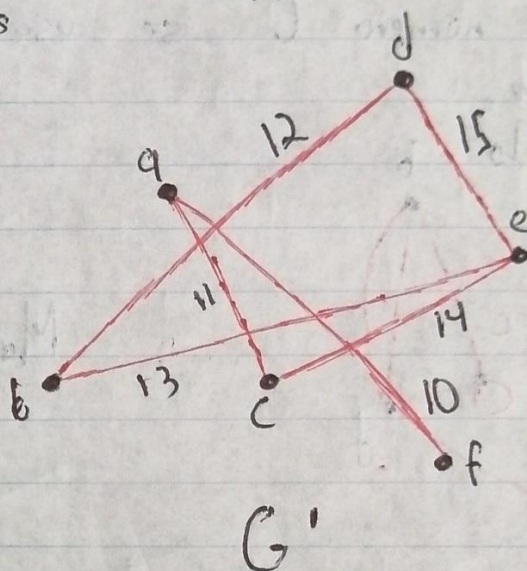 s
d
12
15
a
e
11
14
b
13
c
10
f
G'